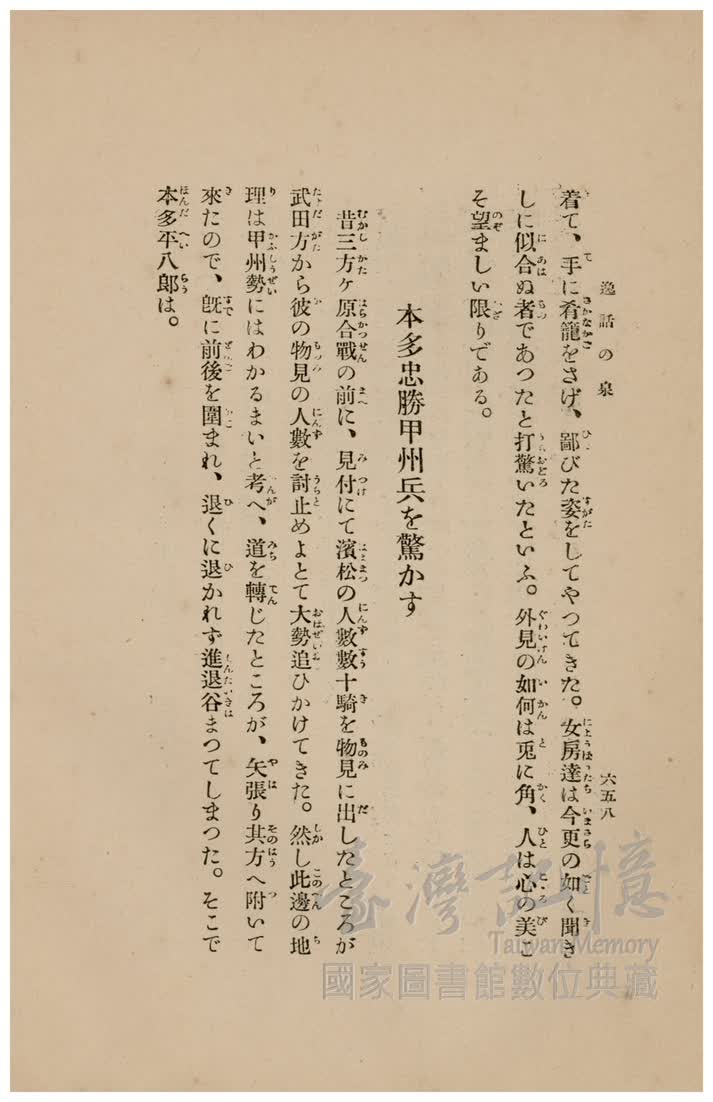 逸話の泉
六五八
着て、手に肴籠をさげ、鄙びた姿をしてやつてきた。女房達は今更の如く聞き
しに似合ぬ者であつたと打驚いたといふ。外見の如何は兎に角、人は心の美こ
そ望ましい限りである。
本多忠勝甲州兵を驚かす
昔三方ヶ原合戰の前に、見付にて濱松の人數數十騎を物見に出したところが
武田方から彼の物見の人數を討止めよとて大勢追ひかけてきた。然し此邊の地
理は甲州勢にはわかるまいと考へ、道を轉じたところが、矢張り其方へ附いて
來たので、旣に前後を圍まれ、退くに退かれず進退谷まつてしまつた。そこで
本多平八郎は。
臺灣記憶
Taiwan Memory
國家圖書館數位典藏